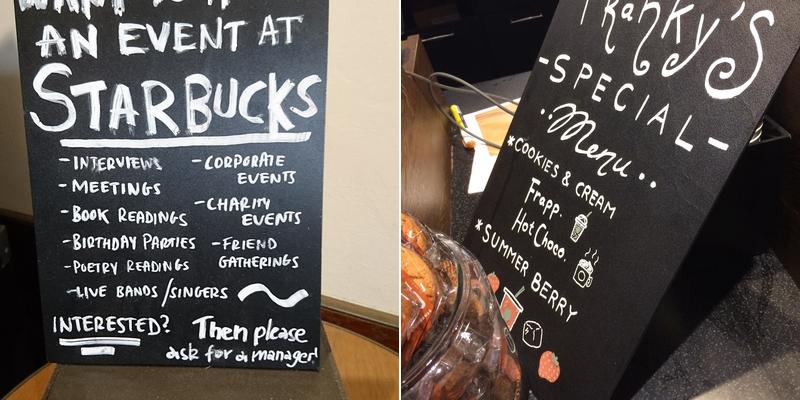 AN EVENT AT
STARBUCKS
- INTERVIEWS
- MEETINGS
- BOOK READINGS
- BIRTHDAY PARTIES
- POETRY READINGS
- LIVE BANDS / SINGERS
- CORPORATE
EVENTS
- CHARITY
EVENTS
- FRIEND
GATHERINGS
INTERESTED? Then please
ask for a manager!
Franky's
- SPECIAL -
Menu
* COOKIES & CREAM
Frapp.
Hot Choco.
* SUMMER BERRY